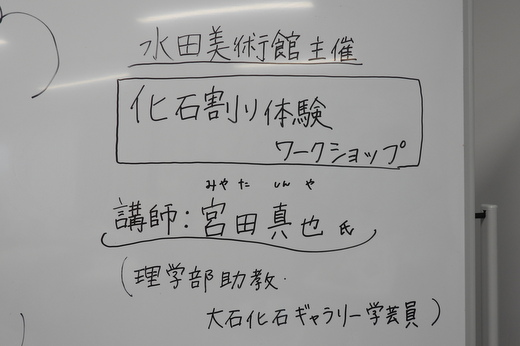 水田美術館主催
化石割り体験
ワークショップ
みやた しんや
講師:宮田真也氏
(理学部助教・
大石化石ギャラリー学芸員)